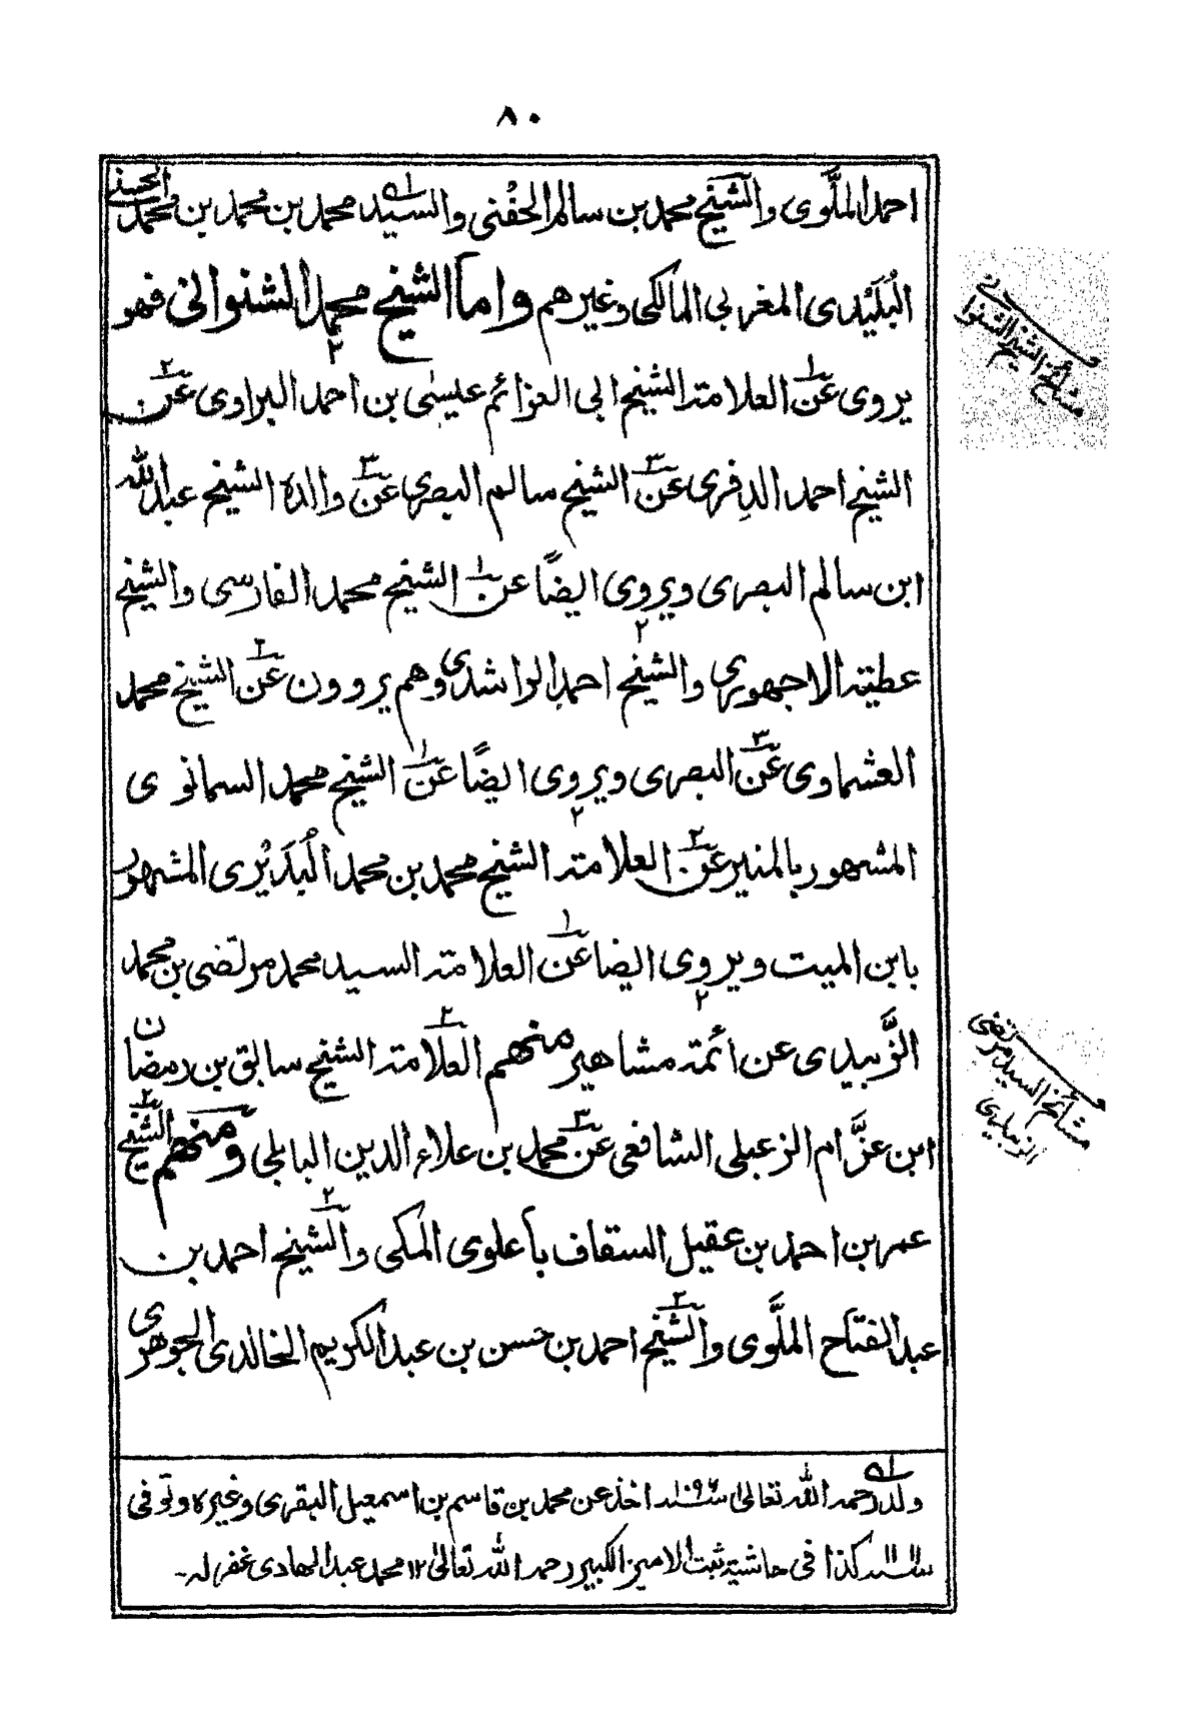 ٨٠
احمد الملَّوی والشیخ محمد بن سالم الحفْنی والسید محمد بن محمد بن محمد الحسنی
البُلَیْدی المغربی المالکی وغیرهم واما الشیخ محمد الشنوانی فهو
مشائخ الشیخ الشنوانی
یروی عن العلامة الشیخ ابی العزائم عیسٰی بن احمد البراوی عن
الشیخ احمد الدِفری عن الشیخ سالم البصری عن والده الشیخ عبدالله
ابن سالم البصری ویروی ایضًا عن الشیخ محمد الفارسی والشیخ
عطیة الاجهوری والشیخ احمد الراشدی وهم یروون عن الشیخ محمد
العشماوی عن البصری ویروی ایضًا عن الشیخ محمد السمانوی
المشهور بالمنیر عن العلامة الشیخ محمد بن محمد البُدَیْری المشهور
بابن المیت ویروی ایضا عن العلامة السید محمد مرتضی بن محمد
الزَّبیدی عن ائمة مشاهیر منهم العلامة الشیخ سابق بن رمضان
مشائخ السید مرتضی
الزبیدی
ابن عزَّام الزعبلی الشافعی عن محمد بن علاء الدین البابلی ومنهم الشیخ
عمر بن احمد بن عقیل السقاف باعلوی المکی والشیخ احمد بن
عبد الفتاح الملَّوی والشیخ احمد بن حسن بن عبد الکریم الخالدی الجوهری
ولد رحمه الله تعالیٰ سنة ١٠٩٦ اخذ عن محمد بن قاسم بن اسمعیل البقری وغیره وتوفی
کذا فی حاشیة ثبت الامیر الکبیر رحمه الله تعالیٰ ١٢ محمد عبد الهادی غفر له-